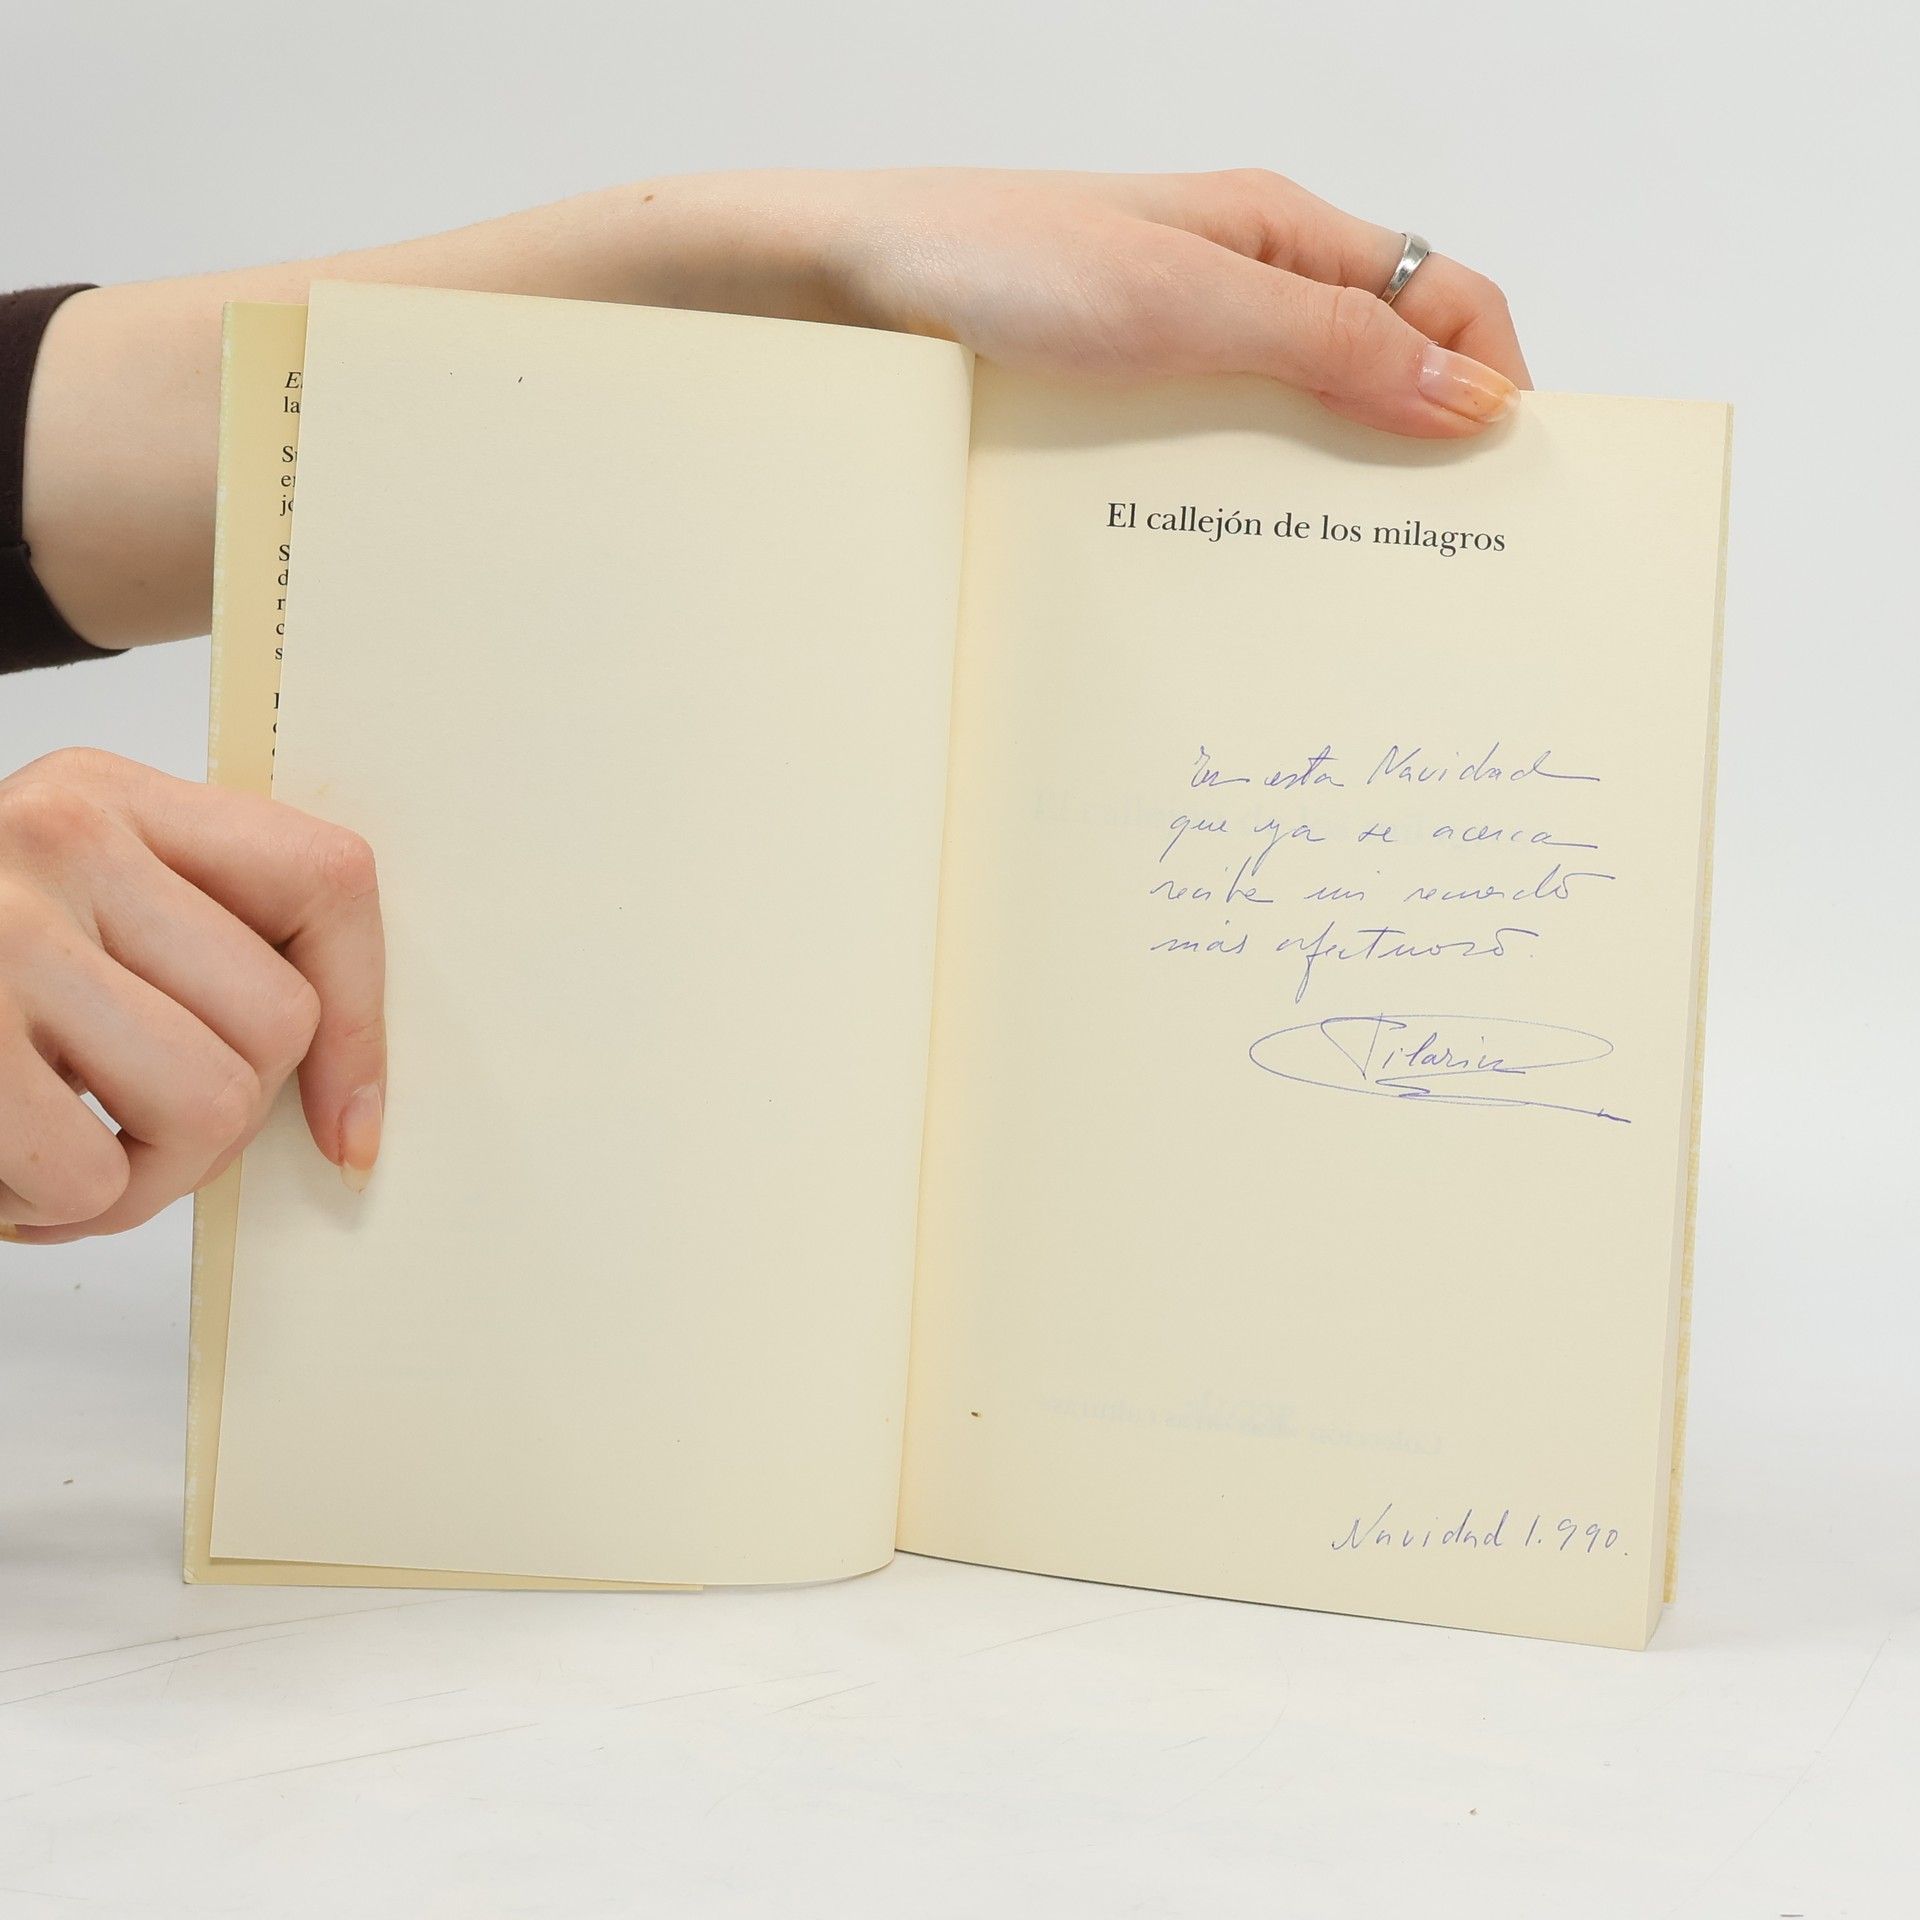 El callejón de los milagros
En esta Navidad
que ya se acerca
recibe mi recuerdo
más afectuoso.
Pilarín
Navidad 1.990.